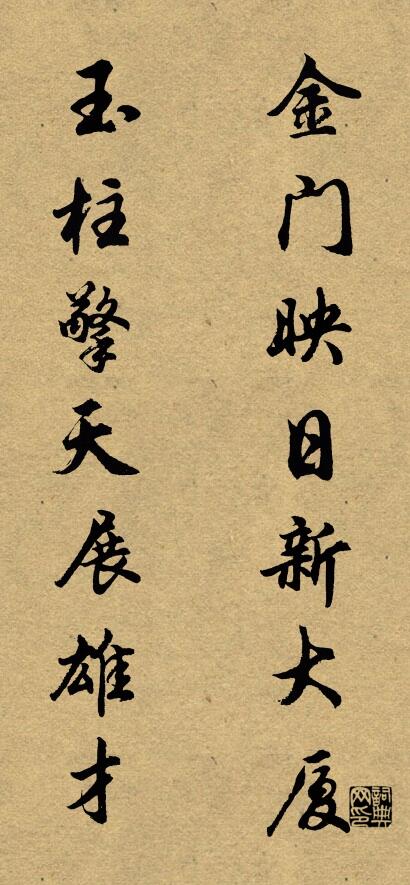 金门映日新大厦
玉柱擎天展雄才
詞典网印